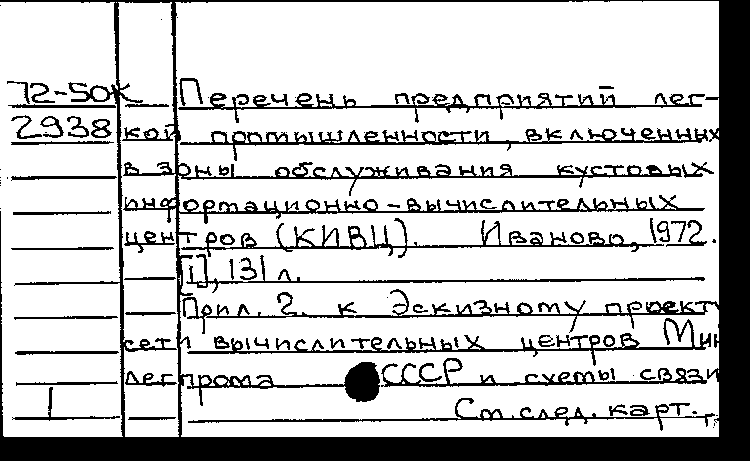 72-50К Перечень предприятий лег-
2938 кой промышленности, включенных
в зоны обслуживания кустовых
информационно-вычислительных
центров (КИВЦ). Иваново, 1972.
[1], 131 л.
Прил. 2. к Эскизному проекту
сети вычислительных центров Мин
легпрома СССР и схемы связи
1 См. след. карт.